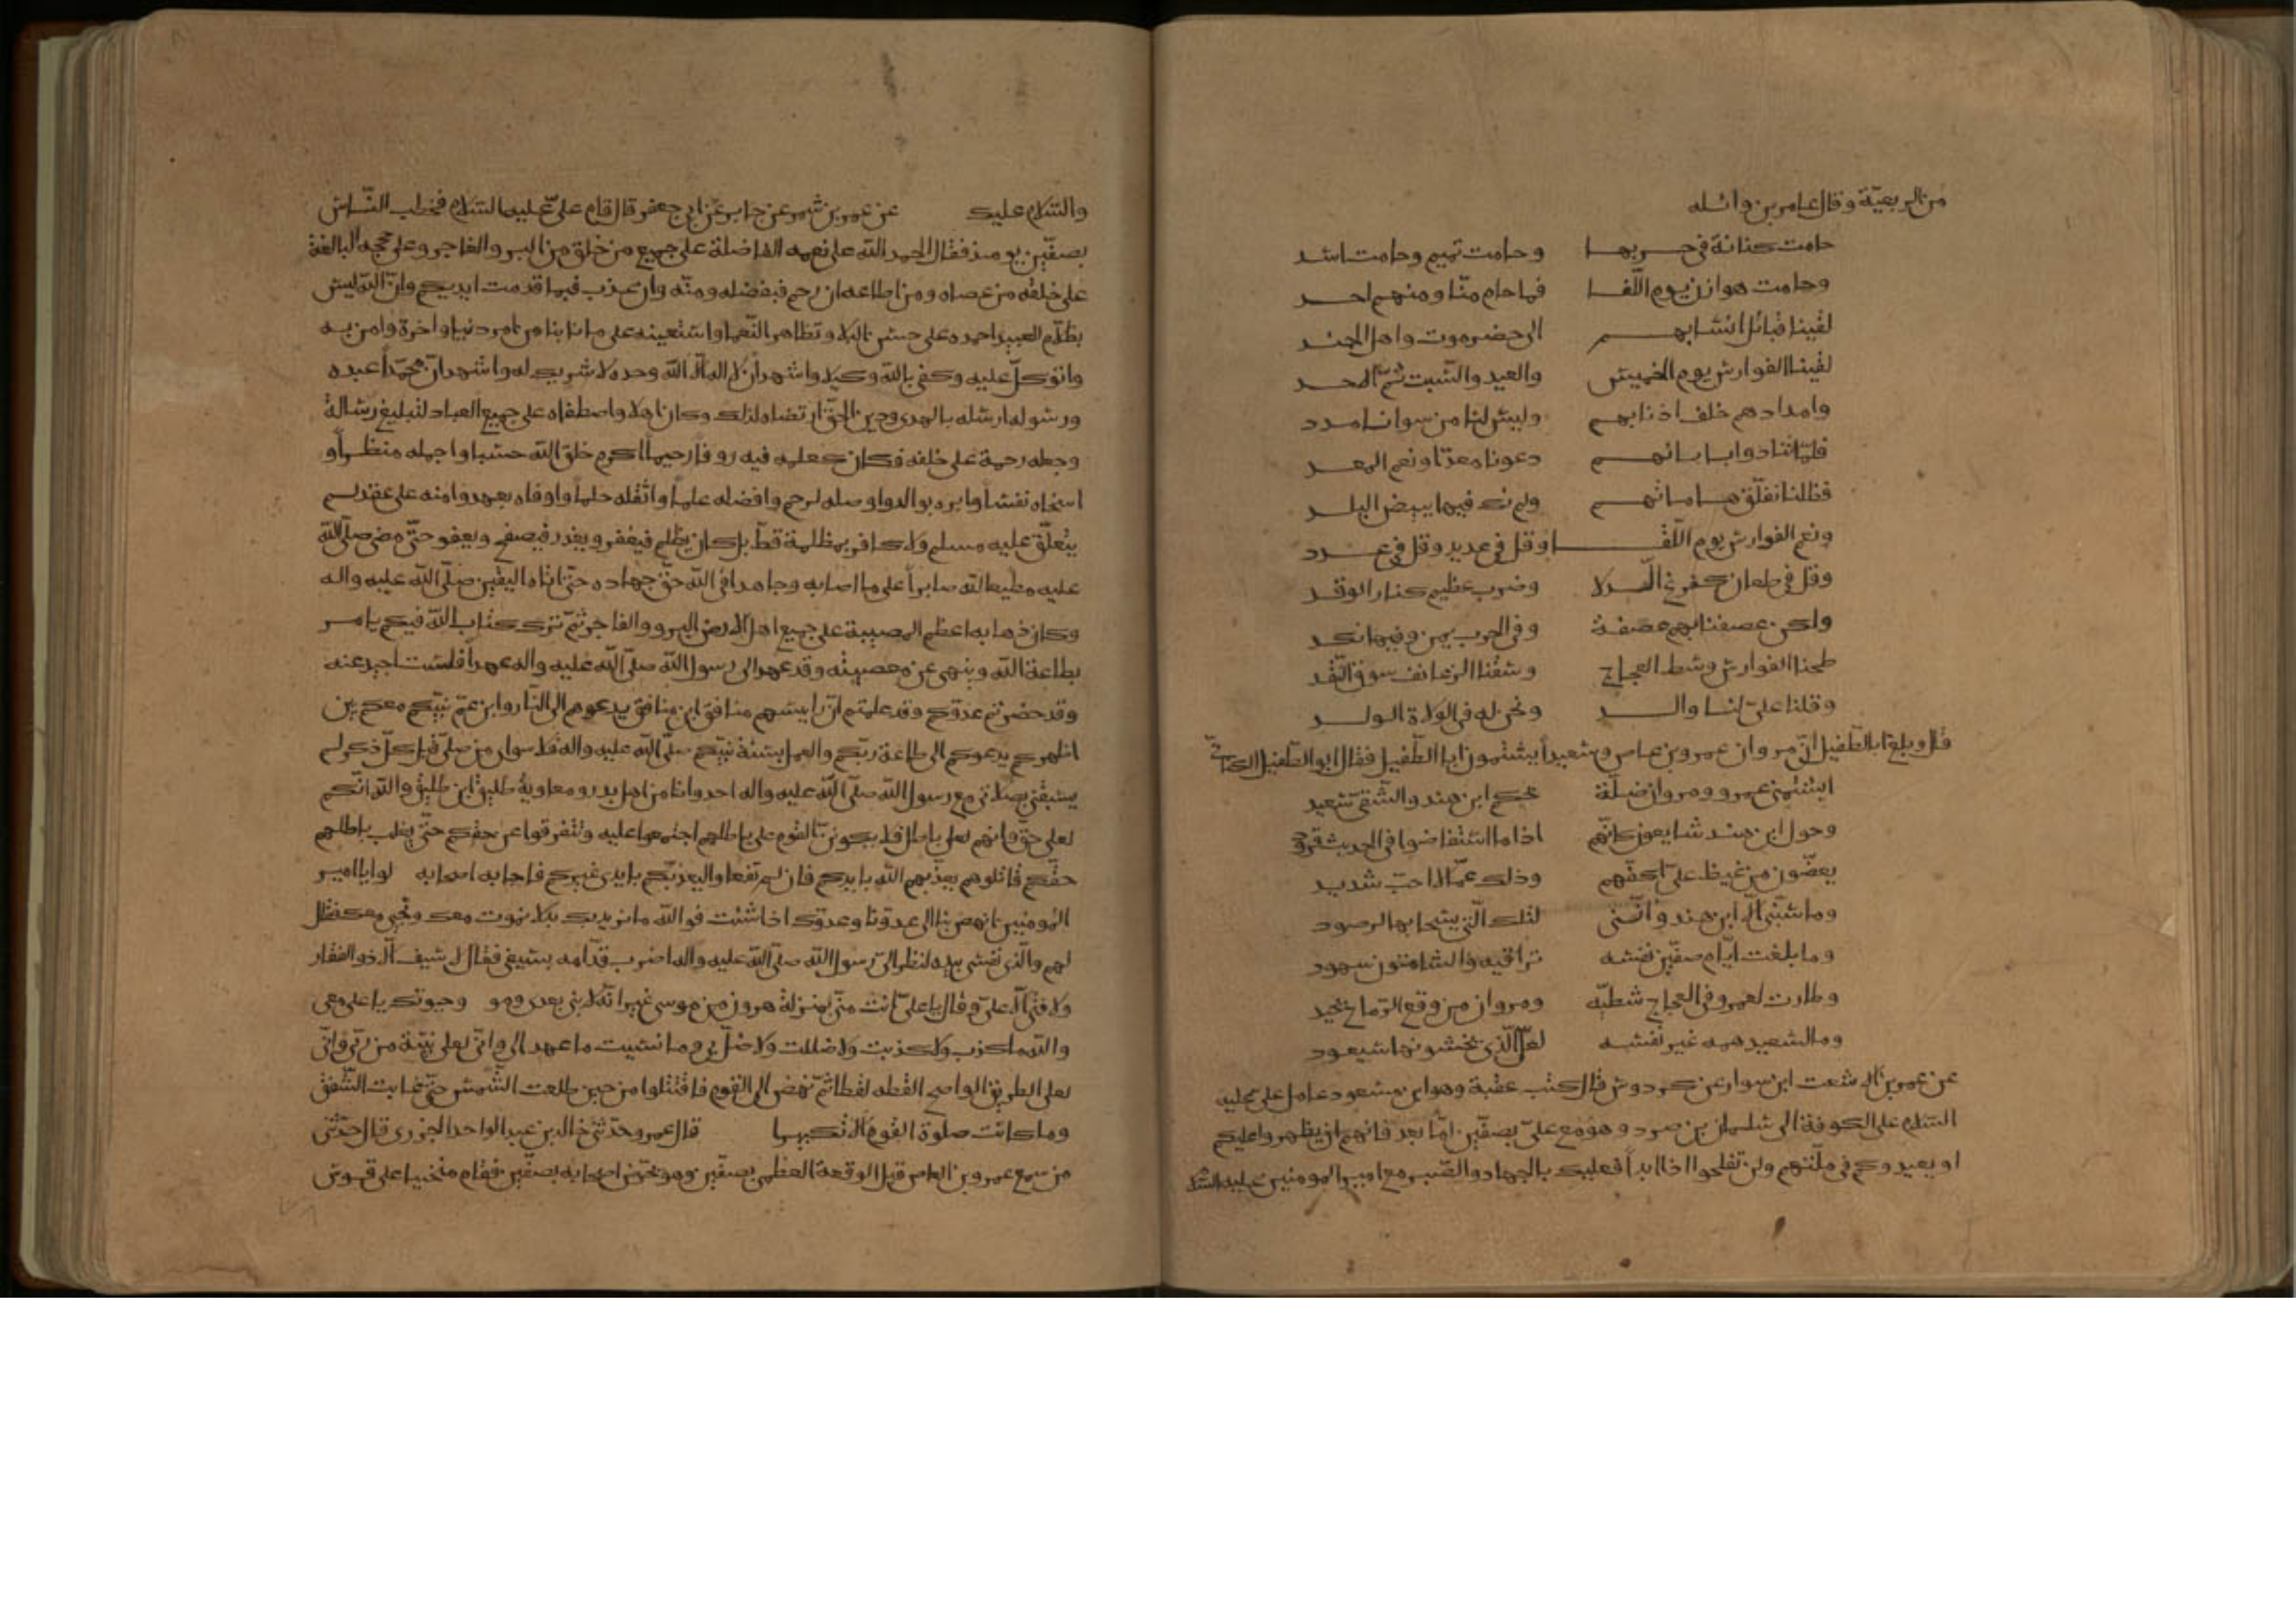 من الربعيّة وقال عامر بن واثله
حامت كنانة في حربها وحامت تميم وحامت اسد
وحامت هوازن يوم اللّقا فما حام منّا ومنهم احد
لقينا قبائل انسابهم الى حضرموت واهل الجند
لقينا الفوارس يوم الخميس والعيد والسّبت ثمّ الاحد
وامدادهم خلف اذنابهم وليس لنا من سوانا مدد
فلمّا تنادوا بابائهم دعونا معدّا ونعم المعد
فظلنا نفلّق هاماتهم ولم نك فيها ببيض البلد
ونعم الفوارس يوم اللّقا وقل في عديد وقل في عدد
وقل في طعان كفرغ الّدلا وضرب عظيم كنار الوقد
ولكن عصفنا بهم عصفة وفي الحرب يمن وفيها نكد
طحنا الفوارس وسط العجاج وسقنا الزعانف سوق النّقد
وقلنا علىّ لنا والد ونحن له في الولاة الولد
قال وبلغ ابا الطّفيل انّ مروان عمرو بن عاص وسعيداً يشتمون ابا الطّفيل فقال ابو الطّفيل الكنانيّ
ايشتمنى عمرو ومروان ضلّة بحكم ابن هند والشّقى سعيد
وحول ابن هند شايعون كانّهم اذا ما استفاضوا في الحديث قرود
يعضّون من غيظ علىّ اكفّهم وذلك غمّ لا احبّ شديد
وما سبّنى الّا ابن هند وانّنى لتلك الّتى يشجا بها لرصود
وما بلغت ايّام صفّين نفسه تراقيه والشامتون سهود
وطارت لعمرو في العجاج شظيّه ومروان من وقع الرّماح يحيد
وما لسعيد همه غير نفسه لعلّ الّذى يخشونها سيعود
عن عمر بن الاشعث ابن سوار عن كردوس قال كتب عقبة وهو ابن مسعود عامل على عليه
السّلام على الكوفة الى سليمان بن صرد وهو مع علىّ بصفّين امّا بعد فانهم ان يظهروا عليكم
او يعيدوكم في ملّتهم ولن تفلحوا اذا ابداً فعليك بالجهاد والصّبر مع امير المومنين عليه السّلام
والسّلام عليك عن عمر بن شمر عن جابر عن ابى جعفر قال قام علىّ عليه السّلام فخطب النّاس
بصفّين يومئذ فقال الحمد للّه على نعمه الفاضلة على جميع من خلق من البر والفاجر وعلى حججه البالغة
على خلقه من عصاه ومن اطاعه ان رحم فبفضله ومنّه وان عذب فبما قدمت ايديكم وانّ اللّه ليس
بظلّام للعبيد احمده على حسن البلا وتظاهر النّعما واستعينه على ما نابنا من امر دنيا واخرة وامن به
واتوكّل عليه وكفى باللّه وكيلا واشهد ان لا اله الّا اللّه وحده لا شريك له واشهد انّ محمّداً عبده
ورسوله ارسله بالهدى ودين الحقّ ارتضاه لذلك وكان اهلا واصطفاه على جميع العباد لتبليغ رسالة
وجعله رحمة على خلقه فكان كعلمه فيه روفاً رحيما اكرم خلق اللّه حسبا واجمله منظراً و
اسخاه نفساً وابره بوالد واوصله لرحم وافضله علماً واثقله حلماً واوفاه بعهد وامنه على عقد لم
يتعلّق عليه مسلم ولا كافر بمظلمة قطّ بل كان يظلم فيغفر ويقدر فيصفح ويعفو حتّى مضى صلّى اللّه
عليه مطيعا للّه صابراً على ما اصابه وجاهدا في اللّه حقّ جهاده حتّى اتاه اليقين صلّى اللّه عليه واله
وكان ذهابه اعظم المصيبة على جميع اهل الارض البرو والفاجر ثمّ ترك كتاب اللّه فيكم يامر
بطاعة اللّه وينهى عن معصيته وقد عهد الى رسول اللّه صلّى اللّه عليه واله عهداً فلست احيد عنه
وقد حضرتم عدوّكم وقد علمتم انّ راييسهم منافق ابن منافق يدعوهم الى النّار وابن عمّ نبيّكم معكم بين
اظهركم يدعوكم الى طاعة ربّكم والعمل بسنّة نبيّكم صلّى اللّه عليه واله فلا سوا من صلّى قبل كلّ ذكر لم
يسبقنى بصلاتى مع رسول اللّه صلّى اللّه عليه واله احد وانا من اهل بدر ومعاوية طليق ابن طليق واللّه انّكم
لعلى حقّ وانهم لعلى باطل فلا يكوننّ القوم على باطلهم اجتمعوا عليه وتتفرقوا عن حقّكم حتّى يغلب باطلهم
حقّكم قاتلوهم يعذّبهم اللّه بايديكم فان لم تفعلوا ليعذبّكم بايدى غيركم فاجابه اصحابه لوا يا امير
المومنين انهض بنا الى عدوّنا وعدوّك اذا شئت فواللّه ما نريد بك بدلا نموت معك ونحيى معك فقال
لهم والّذى نفسى بيده لنظر الىّ رسول اللّه صلّى اللّه عليه واله اضرب قدّامه بسيفى فقال لا سيف الّا ذو الفقار
ولا فتى الّا علىّ وقال يا علىّ انت منّى بمنزلة هرون من موسى غير انّه لا نبى بعدى وهو وحيوتك يا على معى
واللّه ما كذب ولا كذبت ولا ضللت ولا ضلّ بى وما نسيت ما عهد الى وانّى لعلى بيّنة من ربّى وانّى
لعلى الطريق الواضح القطه لقطا ثمّ نهض الى القوم فاقتتلوا من حين طلعت الشّمس حتّى غابت الشّفق
وما كانت صلوة القوم الّا تكبيرا قال عمر وحدّثنى خالد بن عبد الواحد الجزرى قال حدّثنى
من سمع عمرو بن العاص قبل الوقعة العظمى بصفّين وهو يحرّض اصحابه بصفّين فقام منحنيا على قوس